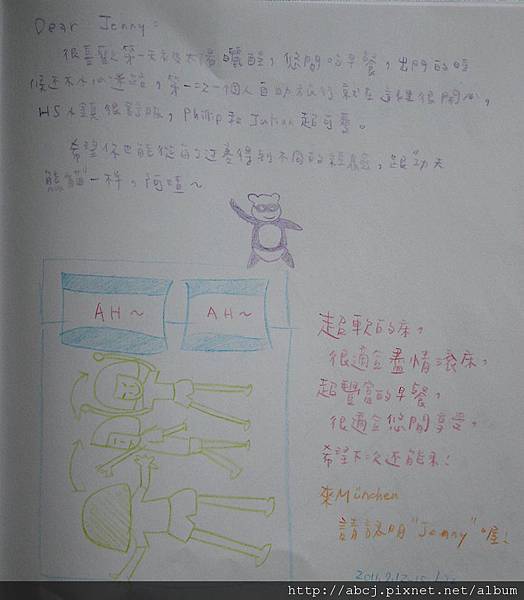 Dear Jenny:
很喜歡第一天被太陽曬醒，悠閒吃早餐，出門的時
候還不小心迷路，第一次一個人自助旅行就在這裡很開心，
小鎮很舒服，Philip和Julian超可愛。
希望你也能從自己這邊得到不同的經驗，跟"功夫
熊貓"一樣，阿喳～
AH~
AH~
超軟的床，
很適合盡情滾床，
超豐富的早餐，
很適合悠閒享受，
希望下次還能來！
來München
請認明"Jenny"喔！
http://abcj.pixnet.net/album